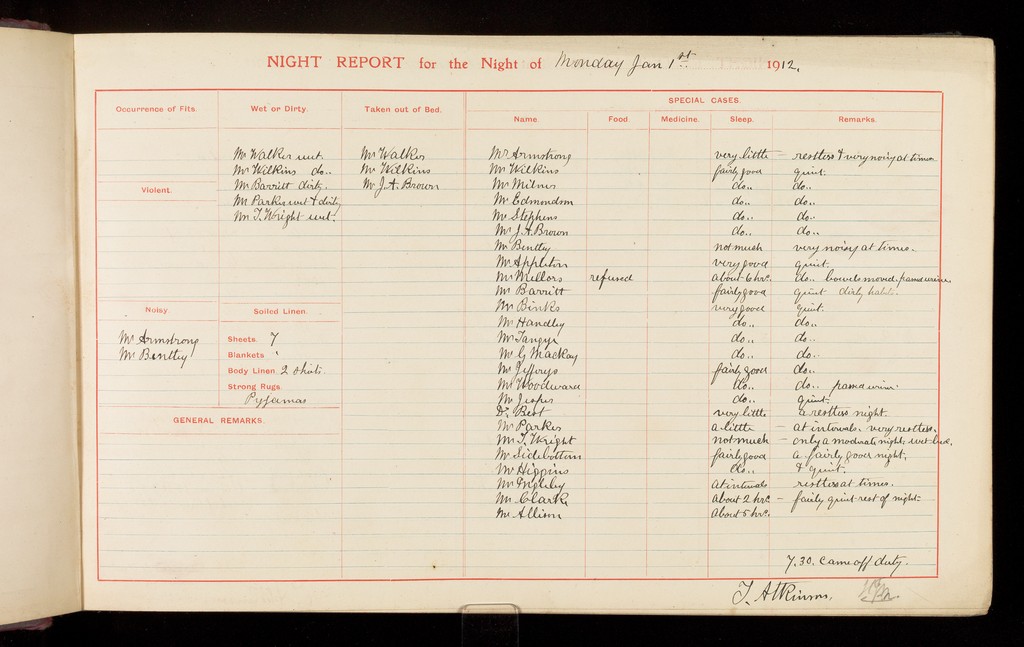 NIGHT REPORT for the Night of Monday Jan 1st 1912.
Occurrence of Fits.
Wet or Dirty.
Mr Walker wet.
Mr Wilkins do..
Mr Barritt dirty.
Mr Parkes wet & dirty
Mr T. Wright wet.
Taken out of Bed.
Mr Walker
Mr Wilkins
Mr J. A. Brown
Violent.
Noisy.
Mr Armstrong
Mr Bentley
Soiled Linen.
Sheets. 7
Blankets "
Body Linen. 2 shirts.
Strong Rugs.
Pyjamas
GENERAL REMARKS.
SPECIAL CASES.
Name. Food. Medicine. Sleep. Remarks.
Mr Armstrong very little – restless & very noisy at times
Mr Wilkins fairly good quiet.
Mr Milnes do.. do..
Mr Edmondson do.. do..
Mr Stephens do.. do..
Mr J. A. Brown do.. do..
Mr Bentley not much very noisy at times.
Mr Appleton very good quiet.
Mr Mellors refused about 6 hrs. do.. bowels moved. passed urine.
Mr Barritt fairly good quiet dirty habits.
Mr Binks very good quiet.
Mr Handley do.. do..
Mr Tangye do.. do..
Mr G Mackay do.. do..
Mr Jeffreys fairly good do..
Mr Woodward do.. do.. passed urine.
Mr Jesper do.. quiet.
Dr Best very little a restless night.
Mr Parkes a little – at intervals. very restless.
Mr T. Wright not much – only a moderate night. wet bed.
Mr Sidebottom fairly good a fairly good night.
Mr Higgins do.. & quiet.
Mr at intervals restless at times.
Mr Clarke about 2 hrs – fairly quiet rest of night.
Mr Allison about 5 hrs.
7.30. Came off duty.
T. Atkinson.